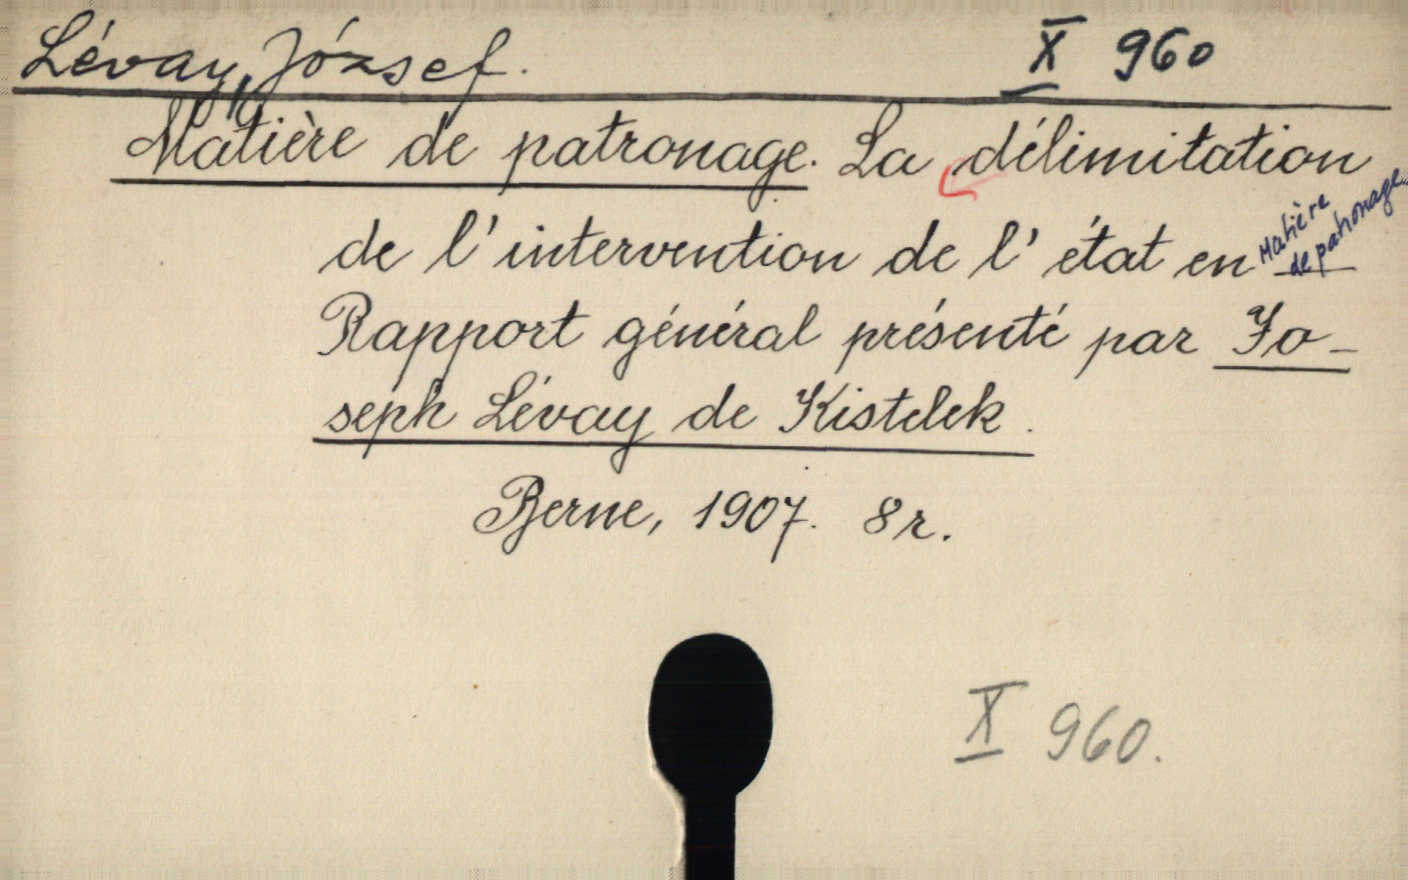 Lévay, József. X 960
Matière de patronage. La délimitation
de l'intervention de l'état en Matière de patronage.
Rapport général présenté par Jo-
seph Lévay de Kistelek.
Berne, 1907. 8r.
X 960.